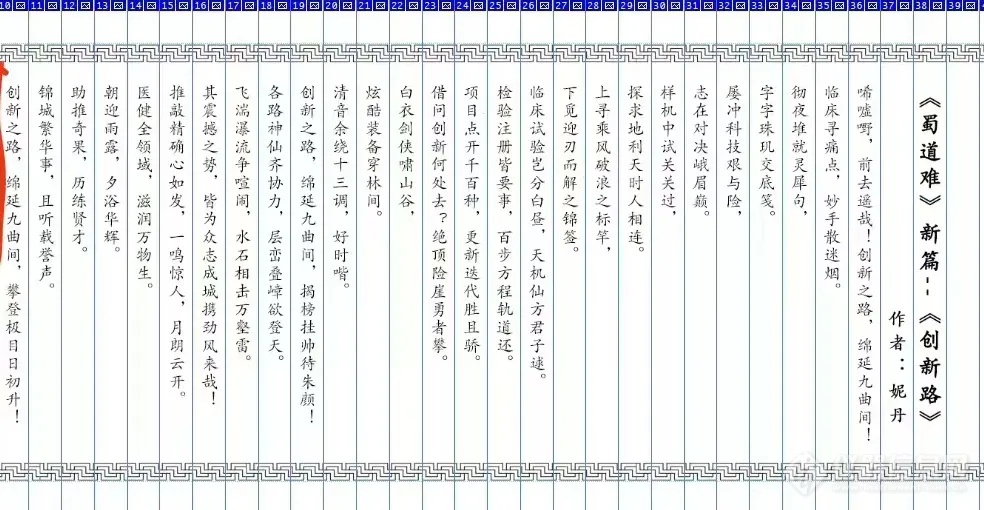 10 11 12 13 14 15 16 17 18 19 20 21 22 23 24 25 26 27 28 29 30 31 32 33 34 35 36 37 38 39
《蜀道难》新篇--《创新路》
作者：妮丹
唏嘘嘢，前去遥哉！创新之路，绵延九曲间！
临床寻痛点，妙手散迷烟。
彻夜堆就灵犀句，
字字珠玑交底笺。
屡冲科技艰与险，
志在对决峨眉巅。
样机中试关关过，
探求地利天时人相连。
上寻乘风破浪之标竿，
下觅迎刃而解之锦签。
临床试验岂分白昼，天机仙方君子逑。
检验注册皆要事，百步方程轨道还。
项目点开千百种，更新迭代胜且骄。
借问创新何处去？绝顶险崖勇者攀。
白衣剑侠啸山谷，
炫酷装备穿林间。
清音余绕十三调，好时喈。
创新之路，绵延九曲间，揭榜挂帅待朱颜！
各路神仙齐协力，层峦叠嶂欲登天。
飞湍瀑流争喧闹，水石相击万壑雷。
其震撼之势，皆为众志成城携劲风来哉！
推敲精确心如发，一鸣惊人，月朗云开。
医健全领域，滋润万物生。
朝迎雨露，夕浴华辉。
助推奇果，历练贤才。
锦城繁华事，且听载誉声。
创新之路，绵延九曲间，攀登极目日初升！
仪器信息网